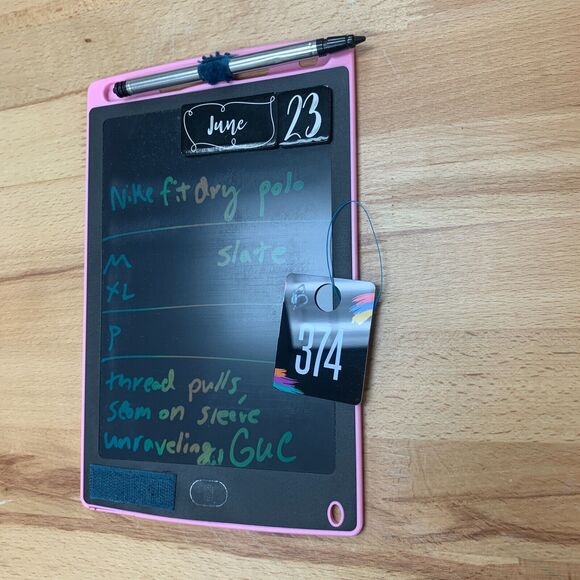 June 23
Nike fit dry polo
M slate
XL
P
thread pulls,
seam on sleeve
unraveling, GUC
B
374